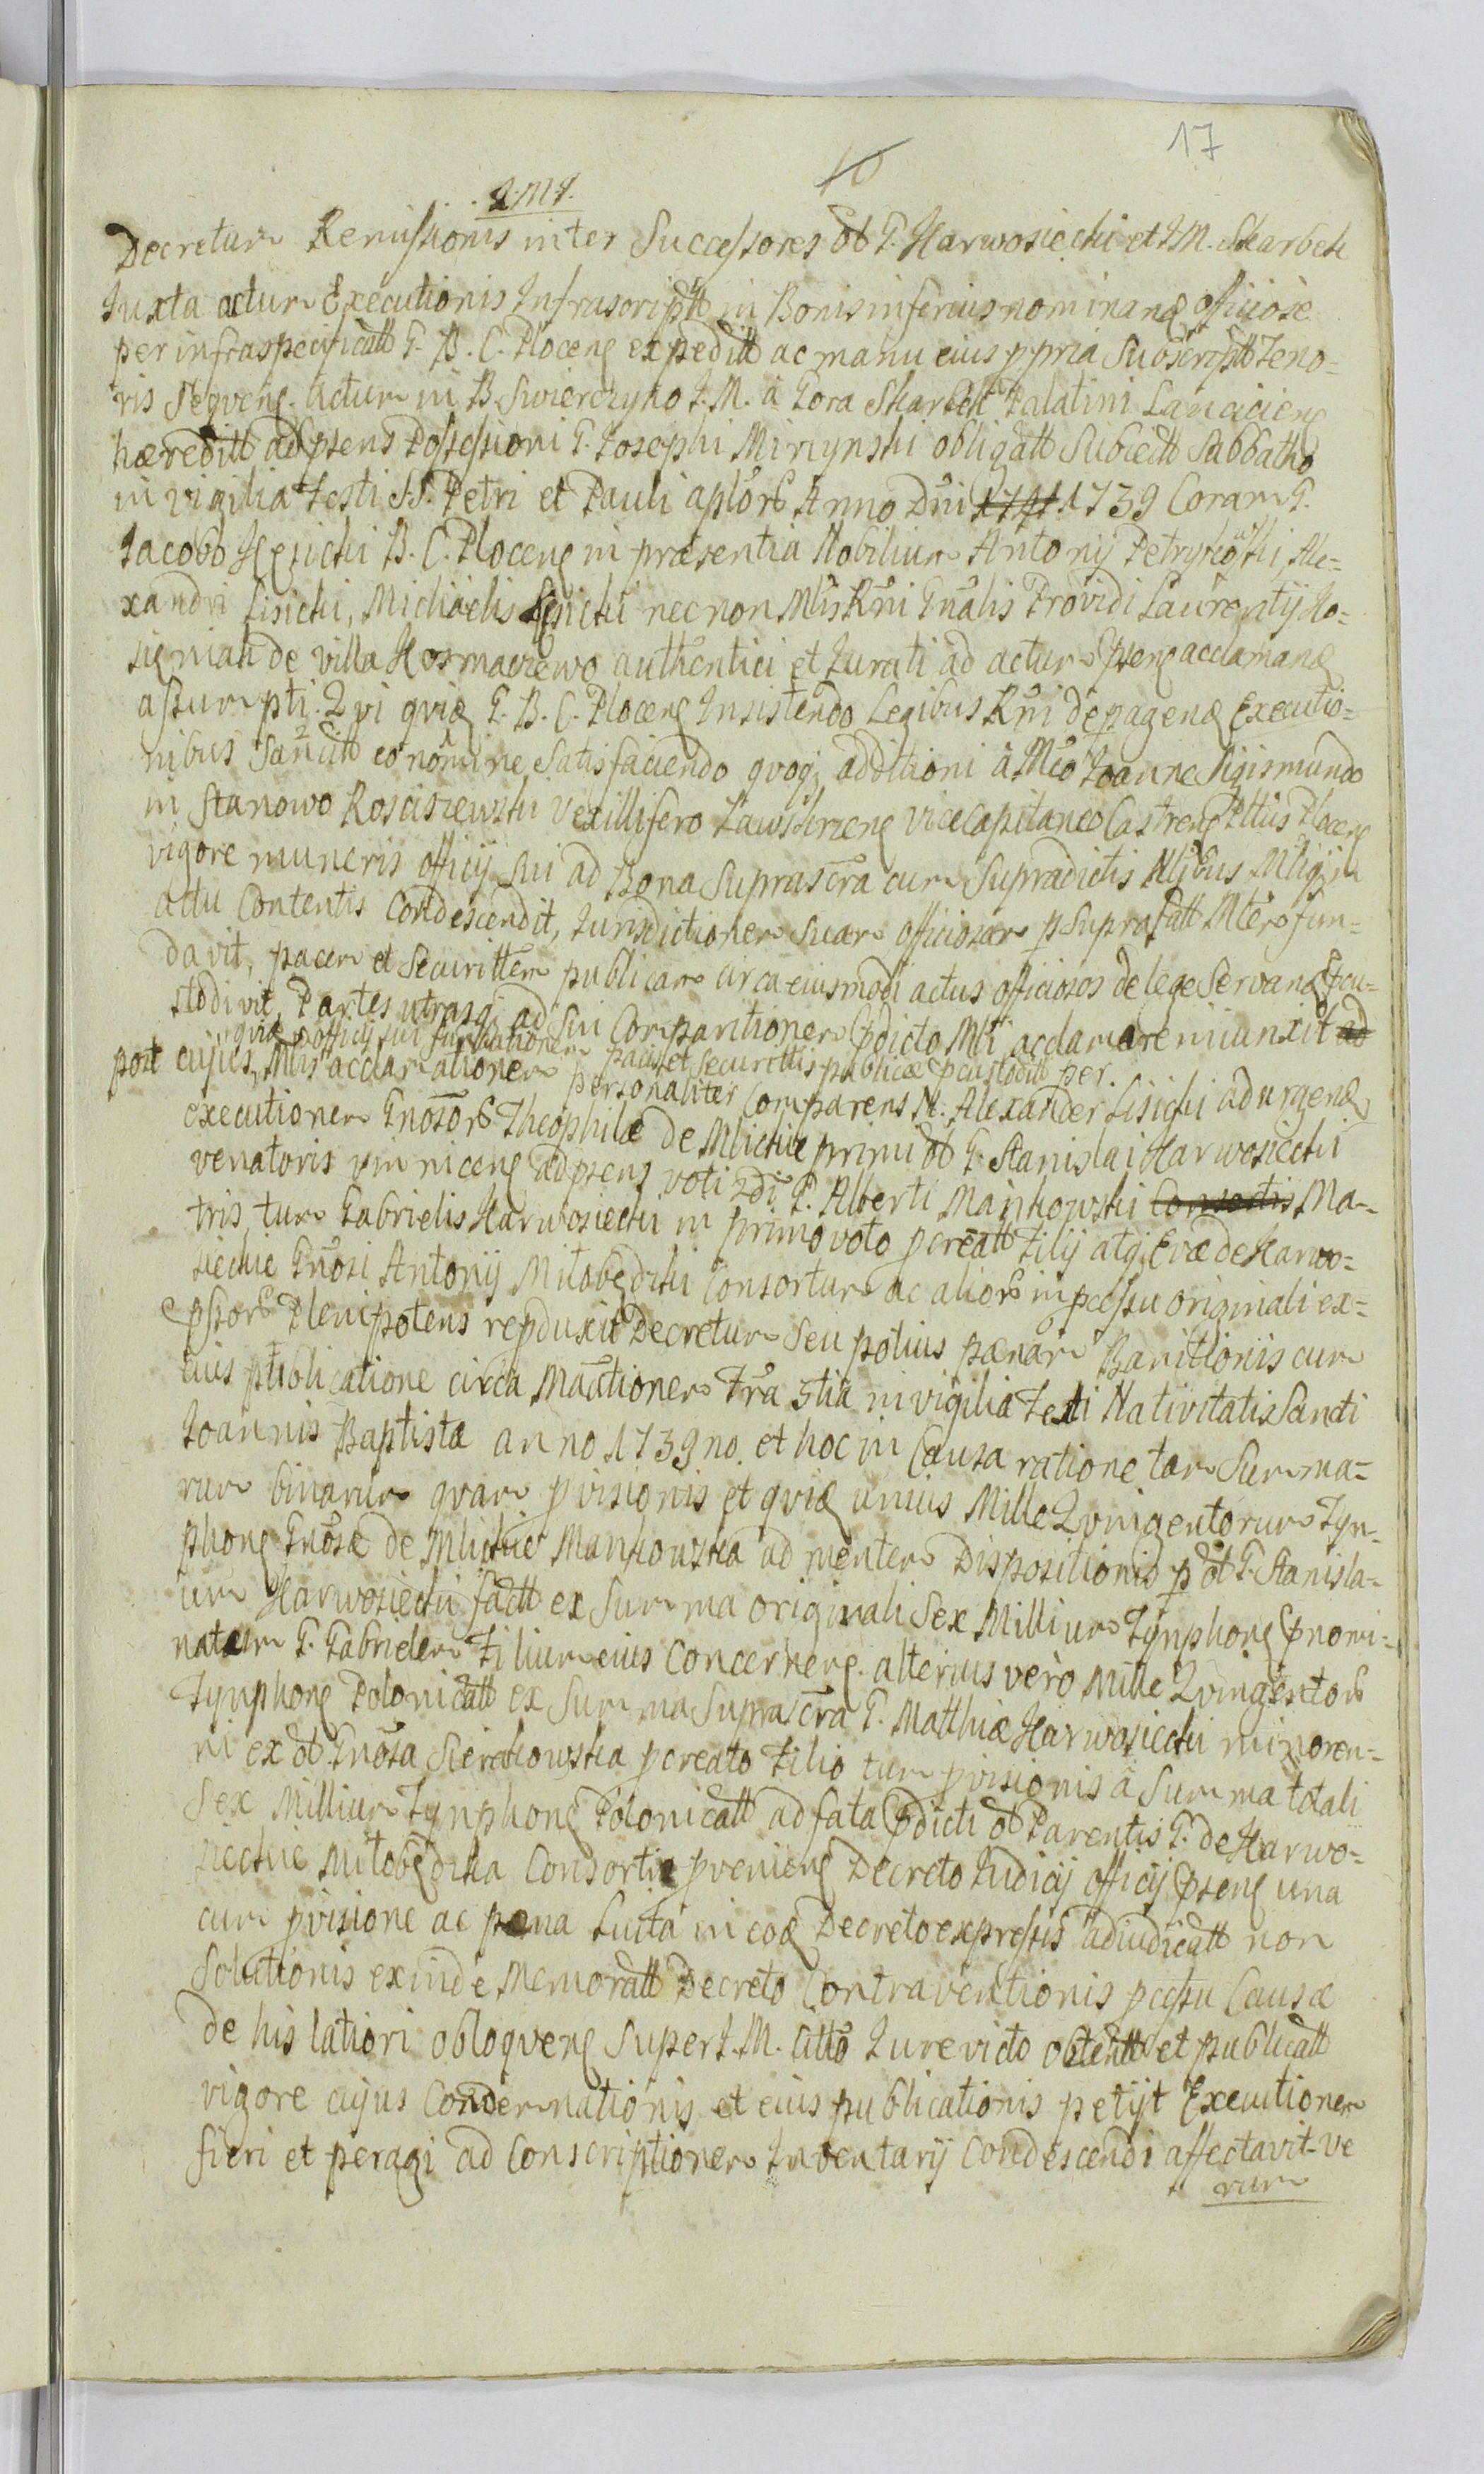 17
10
J.M.J.
Decretum Remissionis inter Successores olt G. Karwosiecki et J.M. Skarbek
Juxta actum Executionis Infrascriptt in Bonis inferius nominand officiose
per infraspecificatt G. B. C. Plocens expeditt ac manu eius ppria Subscriptt Teno=
ris Seqvens. Actum in B. Swierczyno J.M. à Gora Skarbek Palatini Lanciciens
hæreditt ad psens Possessioni G. Josephi Mirzynski obligatt Subiectt Sabbatho
in vigilia Festi SS. Petri et Pauli aplor Anno Dni 1741 1739 Coram G.
Jacobo B. C. Plocens in præsentia Nobilium Antonij Petrykoski, Ale=
xandri Lisicki, Michaelis Lisicki nec non Mlis Rni Gnalis Providi Laurentij Ko=
sieniak de villa Kosmaczewo authentici et Jurati ad actum psens acclamand
assumpti. Qvi qvid G. B. C. Plocens Insistendo Legibus Rni de pagend Executio=
nibus Sancitt eo nomine Satisfaciendo qvoq additioni à Mco Joanne Sigismundo
in Stanowo Rosciszewski Vexillifero Zawskrzens Vice Capitaneo Castrens Pltus Plocens
vigore muneris officij sui ad Bona Suprascra cum Supradictis Nlibus Mlig in
actu Contentis Condescendit, Jurisdictionem Suam officiosam p Suprafatt Mlem fun=
davit, pacem et Securittem publicam circa eiusmodi actus officiosos de lege Servand pcu=
stodivit, Partes utrasq ad Sui Comparitionem pdicto Mli acclamare iniunxit ad
qvid officij sui fundationem pacis et Securittis publicæ pcustodit per.
post cujus Mlis acclamationem personaliter Comparens N. Alexander Lisicki ad urgend
executionem Gnosor Theophilæ de Mlickie primi olt G. Stanislai Karwosiecki
venatoris vinnicens ad psens voti 2di G. Alberti Mankowski Consortis Ma=
tris, tum Gabrielis Karwosiecki in primo voto pcreatt Filij atq Evæ de Karwo=
sieckie Gnosi Antonij Milobędzki Consortum ac alior in pcessu originali ex=
pssor Plenipotens repduxit Decretum Seu potius pænam Banitionis cum
eius publicatione circa Mactionem Fra 3tia in vigilia Festi Nativitatis Sancti
Joannis Baptistæ anno 1739no. et hoc in Causa ratione tam Summa=
rum binarum qvam pvisionis et qvid unius Mille Qvingentorum Tym=
phons Gnosæ de Mlickie Mankowska ad mentem Dispositionis p olt G. Stanisla=
um Karwosiecki factt ex Summa originali Sex Millium Tymphons pnomi=
natum G. Gabrielem Filium eius Concernens. alterius vero Mille Qvingentor
Tymphons Polonicatt ex Summa Suprascra G. Matthiæ Karwosiecki minoren=
ni ex olt Gnosa Sierakowska pcreato Filio tum pvisionis à Summa totali
Sex Millium Tymphons Polonicatt ad fata pdicti olt Parentis G. de Karwo=
sieckie Milobędzka Consorti pveniens Decreto Judicij officij psens una
cum pvisione ac pæna luita in eod Decreto expressis adiudicatt non
Solutionis exinde Memoratt Decreto Contraventionis pcessu Causæ
de his latiori obloqvens Super J.M. Citto Jurevicto obtentt et publicatt
vigore cujus Condemnationis et eius publicationis petijt Executionem
fieri et peragi ad Conscriptionem Inventarij Condescendi affectavit. Ve
rum